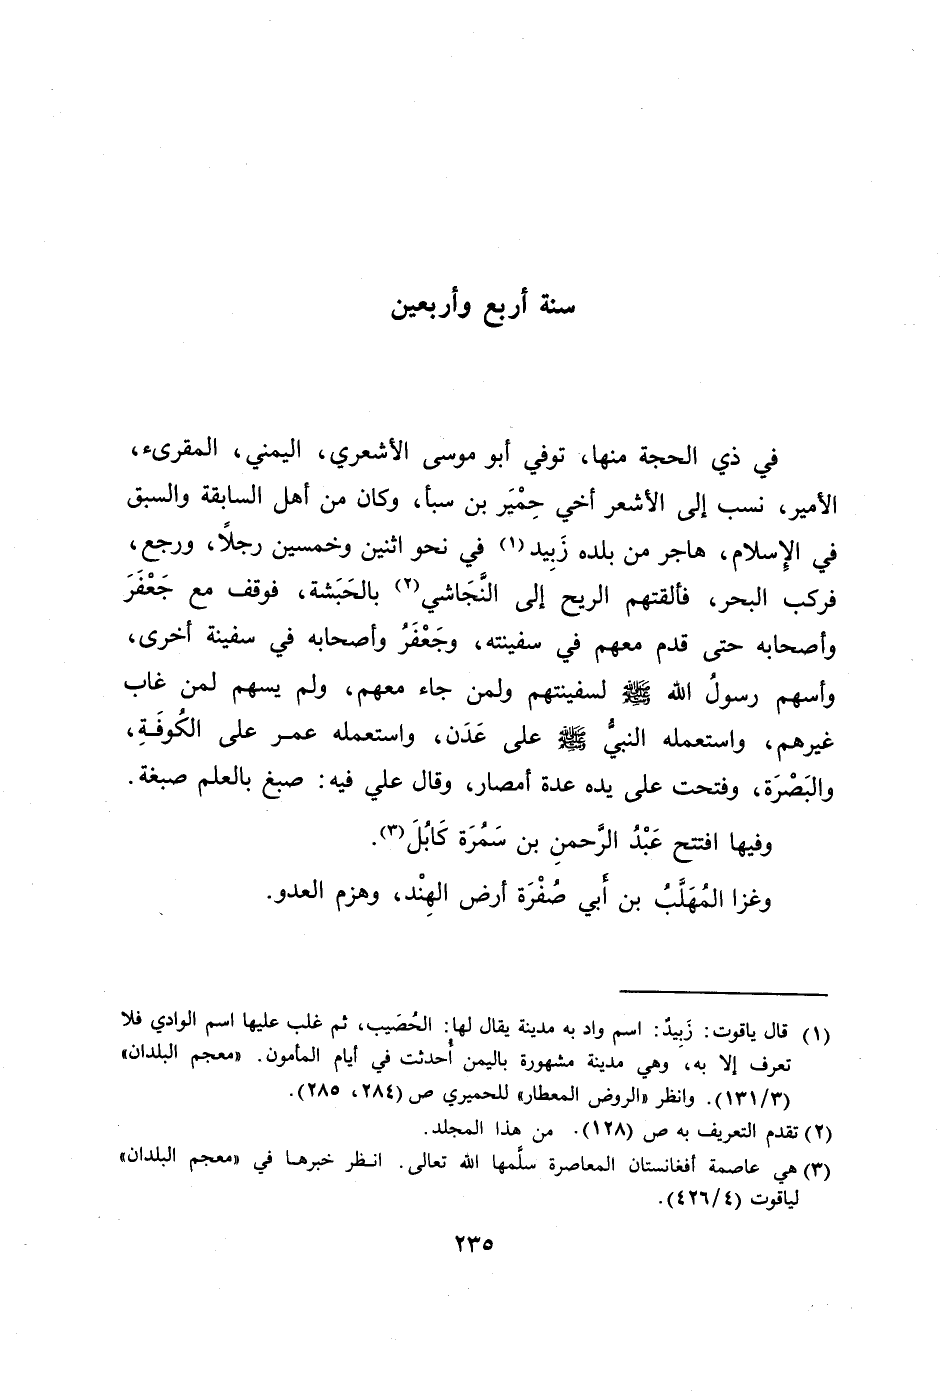 سنة أربع وأربعين
في ذي الحجة منها، توفي أبو موسى الأشعري، اليمني، المقرىء،
الأمير، نسب إلى الأشعر أخي حِمْيَر بن سبأ، وكان من أهل السابقة والسبق
في الإِسلام، هاجر من بلده زَبِيد(١) في نحو اثنين وخمسين رجلاً، ورجع،
فركب البحر، فألقتهم الريح إلى النَّجَاشي(٢) بالحَبَشة، فوقف مع جَعْفَرَ
وأصحابه حتى قدم معهم في سفينته، وجَعْفَرُ وأصحابه في سفينة أخرى،
وأسهم رسولُ الله ﷺ لسفينتهم ولمن جاء معهم، ولم يسهم لمن غاب
غيرهم، واستعمله النبيُّ ﷺ على عَدَن، واستعمله عمر على الكُوفَةِ،
والبَصْرَة، وفتحت على يده عدة أمصار، وقال علي فيه: صبغ بالعلم صبغة.
وفيها افتتح عَبْدُ الرَّحمنِ بن سَمُرَة كَابُلَ(٣).
وغزا المُهَلَّبُ بن أَبي صُفْرَة أرض الهِنْد، وهزم العدو.
(١) قال ياقوت: زَبِيدٌ: اسم واد به مدينة يقال لها: الحُصَيب، ثم غلب عليها اسم الوادي فلا
تعرف إلا به، وهي مدينة مشهورة باليمن أُحدثت في أيام المأمون. «معجم البلدان»
(١٣١/٣). وانظر «الروض المعطار» للحميري ص (٢٨٤، ٢٨٥).
(٢) تقدم التعريف به ص (١٢٨). من هذا المجلد.
(٣) هي عاصمة أفغانستان المعاصرة سلَّمها الله تعالى. انظر خبرها في «معجم البلدان»
لياقوت (٤٢٦/٤).
٢٣٥